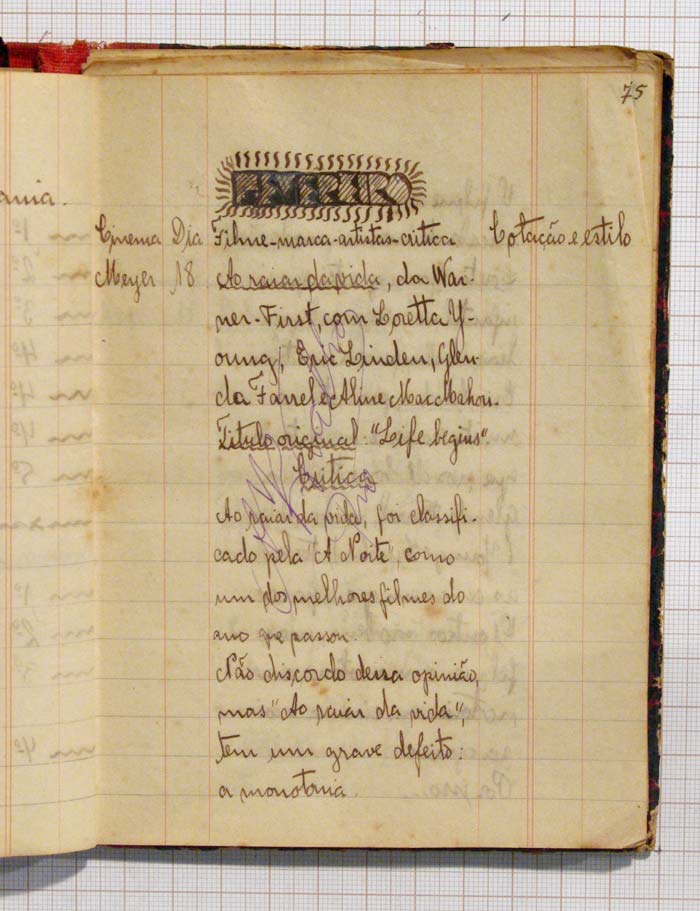 75
FEVEREIRO
ania.
Cinema Dia Filme-marca-artistas-critica Cotação e estilo
Meyer 18 Ao raiar da vida, da War-
ner-First, com Loretta Y-
oung, Eric Linden, Glen-
da Farrel e Aline MacMahon.
Titulo original: "Life begins"
Critica
Ao raiar da vida, foi classifi-
cado pela "A Noite", como
um dos melhores filmes do
ano que passou.
Não discordo dessa opinião,
mas "Ao raiar da vida",
tem um grave defeito:
a monotonia.